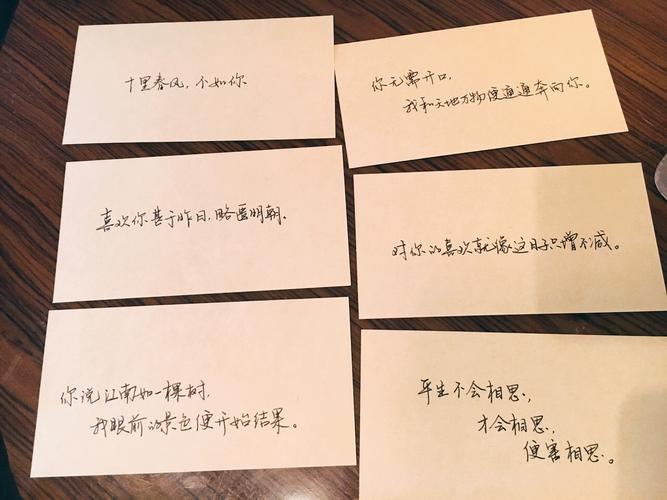 十里春风，不如你
你无需开口，
我和天地万物便通通奔向你。
喜欢你甚于昨日，略匮明朝。
对你的喜欢就像这日子只增不减。
你说江南如一棵树，
我眼前的景色便开始结果。
平生不会相思，
才会相思，
便害相思。